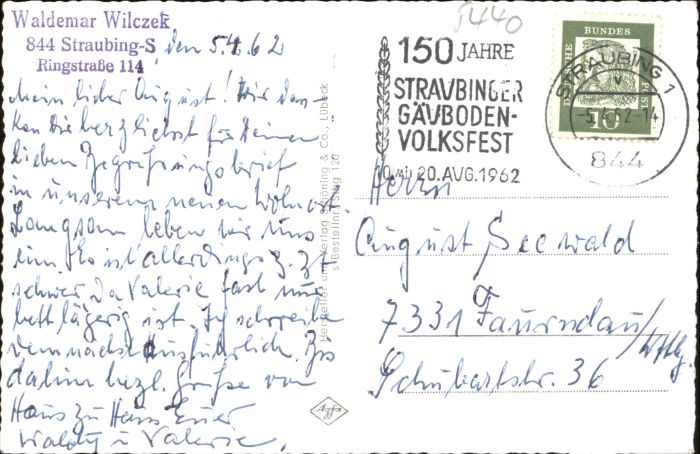 Waldemar Wilczek
844 Straubing-S
Ringstraße 114
den 5.4.62
Mein lieber August! Wir dan-
ken Dir herzlichst für Deinen
lieben Begrüßungsbrief
in unserem neuen Wohnort.
Langsam leben wir uns
ein. Es ist allerdings z. Zt.
schwer, da Valerie fast nur
bettlägerig ist. Ich schreibe
demnächst ausführlich. Bis
dahin herzl. Grüße von
Haus zu Haus Euer
Waldy u. Valerie.
Hersteller und Verlag Schöning & Co., Lübeck
Bestellnr. Strbg 120
Agfa
5440
150 JAHRE
STRAUBINGER
GÄUBODEN-
VOLKSFEST
10. MIT 20. AUG. 1962
DEUTSCHE BUNDESPOST
10
STRAUBING 1
v
-5.4.62-14
844
Herrn
August Seewald
7331 Faurndau/Wttbg.
Schubartstr. 36